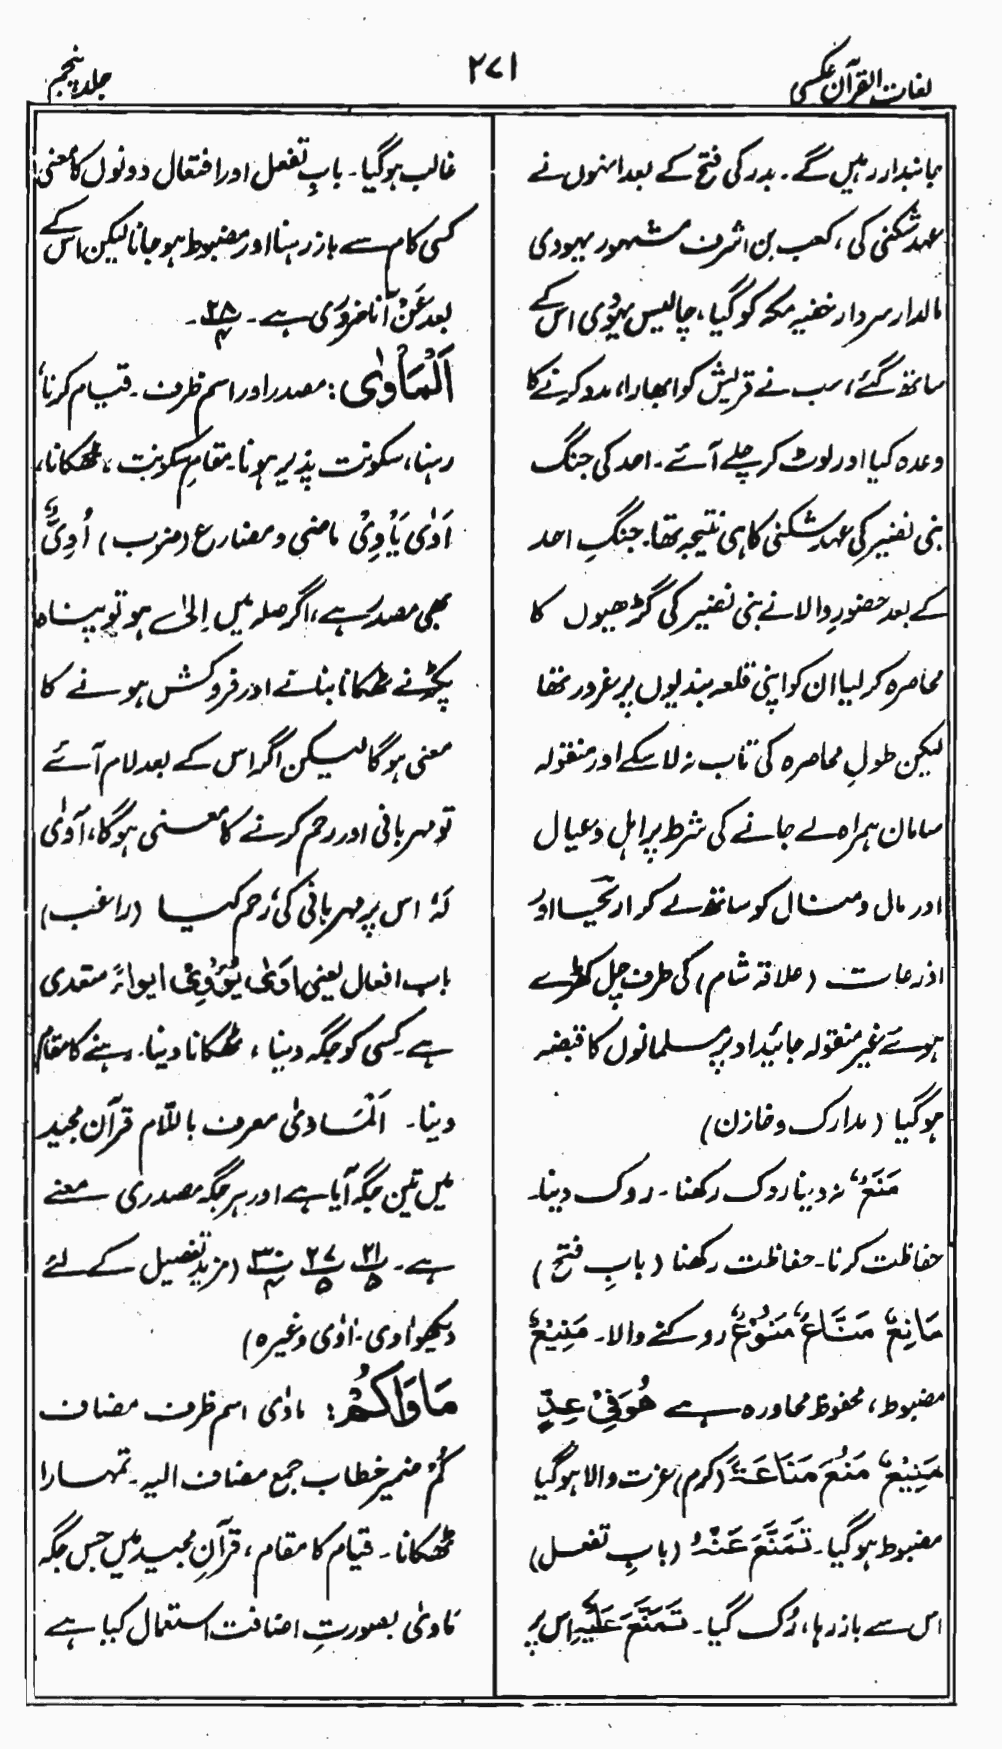 لغات القرآن عکسی
۲۷۱
جلد پنجم
جانبدار رہیں گے۔ بدر کی فتح کے بعد انہوں نے
عہد شکنی کی، کعب بن اشرف مشہور یہودی
مالدار سردار خفیہ مکہ کو گیا، چالیس یہودی اس کے
ساتھ گئے، سب نے قریش کو ابھارا، مدد کرنے کا
وعدہ کیا اور لوٹ کر چلے آئے۔ احد کی جنگ
بنی نضیر کی عہد شکنی کا ہی نتیجہ تھا۔ جنگِ احد
کے بعد حضورِ والا نے بنی نضیر کی گڑھیوں کا
محاصرہ کر لیا ان کو اپنی قلعہ بندیوں پر غرور تھا
لیکن طولِ محاصرہ کی تاب نہ لا سکے اور منقولہ
سامان ہمراہ لے جانے کی شرط پر اہل و عیال
اور مال و منال کو ساتھ لے کر اریحا اور
اذرعات (علاقہ شام) کی طرف چل کھڑے
ہوئے غیر منقولہ جائیداد پر مسلمانوں کا قبضہ
ہوگیا (مدارک و خازن)
مَنَعَ نہ دینا روک رکھنا۔ روک دینا۔
حفاظت کرنا۔ حفاظت رکھنا (بابِ فتح)
مَانِعٌ مَنَّاعٌ مَنُوْعٌ روکنے والا۔ مَنِیْعٌ
مضبوط، محفوظ محاورہ ہے ھُوَ فِیْ عِزٍّ
مَنِیْعٍ مَنُعَ مَنَاعَۃً (کرم) عزت والا ہوگیا
مضبوط ہوگیا۔ تَمَنَّعَ عَنْہُ (بابِ تفعل)
اس سے باز رہا، رُک گیا۔ تَمَنَّعَ عَلَیْہِ اس پر
غالب ہوگیا۔ بابِ تفعل اور افتعال دونوں کا معنی
کسی کام سے باز رہنا اور مضبوط ہو جانا لیکن اس کے
بعد عَنْ آنا ضروری ہے۔ ۲۸/۴۔
اَلْمَاْوٰی: مصدر اور اسم ظرف۔ قیام کرنا،
رہنا، سکونت پذیر ہونا۔ مقامِ سکونت، ٹھکانا،
اَوٰی یَاْوِیْ ماضی و مضارع (ضرب) اُوِیٌّ
بھی مصدر ہے، اگر صلہ میں اِلٰی ہو تو پناہ
پکڑنے ٹھکانا بنانے اور فروکش ہونے کا
معنی ہوگا لیکن اگر اس کے بعد لام آئے
تو مہربانی اور رحم کرنے کا معنی ہوگا، اَوٰی
لَہٗ اس پر مہربانی کی، رحم کیا (راغب)
باب افعال یعنی اٰوٰی، یُؤْوِیْ ایواءً متعدی
ہے۔ کسی کو جگہ دینا، ٹھکانا دینا۔ رہنے کا مقام
دینا۔ اَلْمَاوٰی معرف باللام قرآن مجید
میں تین جگہ آیا ہے اور ہر جگہ مصدری معنے
ہے۔ ۲۱/۵ ۲۷/۵ ۳۰/۴ (مزید تفصیل کے لئے
دیکھو اوی۔ اٰوٰی وغیرہ)
مَاوَاکُمْ: ماوٰی اسم ظرف مضاف
کُمْ ضمیر خطاب جمع مضاف الیہ۔ تمہارا
ٹھکانا۔ قیام کا مقام، قرآنِ مجید میں جس جگہ
ماوٰی بصورتِ اضافت استعمال کیا ہے